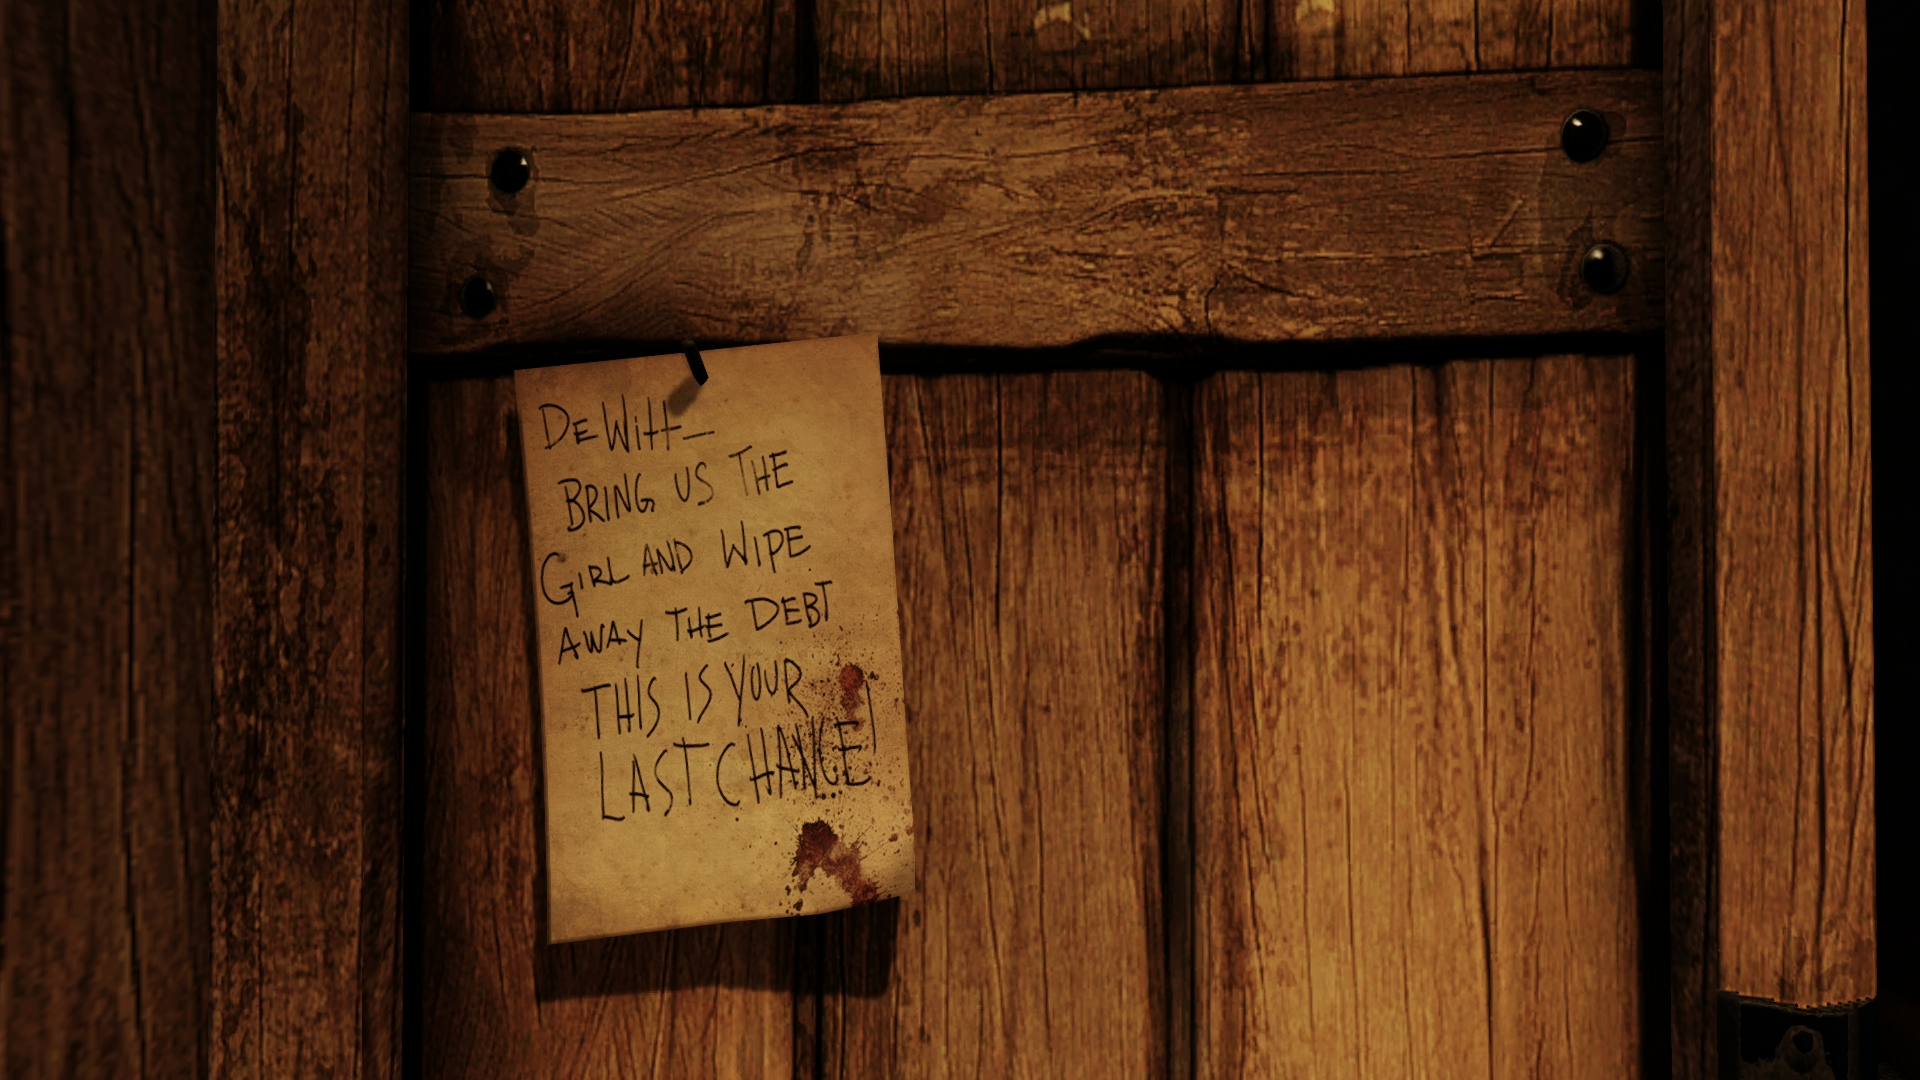 DeWitt—
BRING US THE
GIRL AND WIPE
AWAY THE DEBT
THIS IS YOUR
LAST CHANCE!